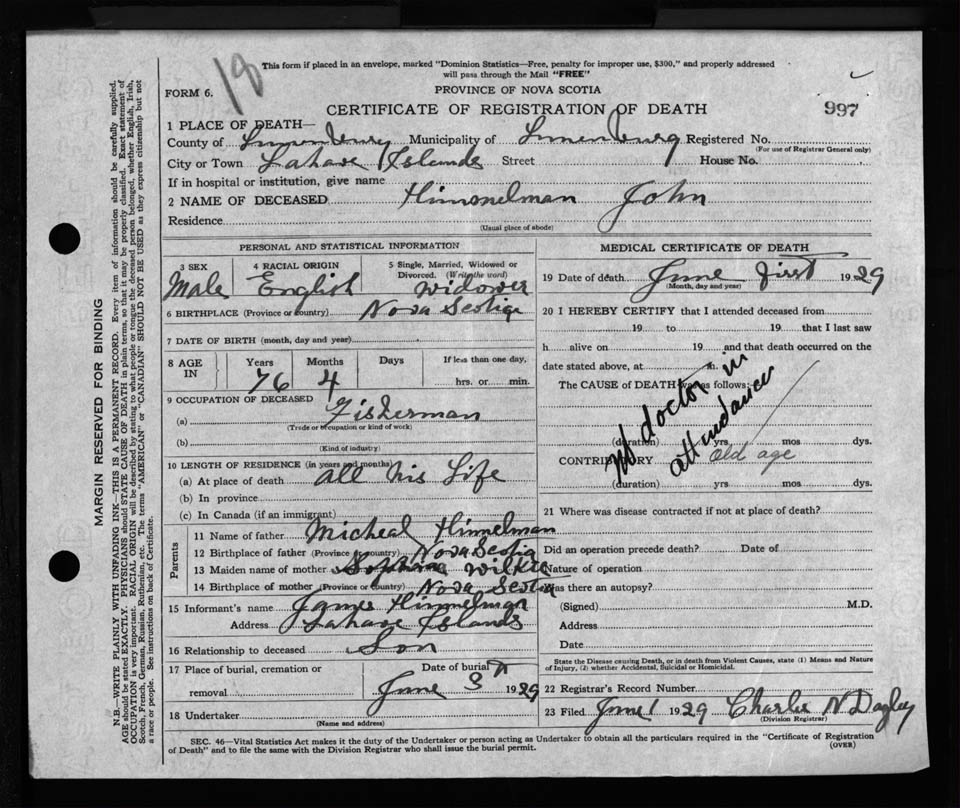 18
This form if placed in an envelope, marked "Dominion Statistics—Free, penalty for improper use, $300," and properly addressed
will pass through the Mail "FREE"
FORM 6.
PROVINCE OF NOVA SCOTIA
CERTIFICATE OF REGISTRATION OF DEATH
997
1 PLACE OF DEATH—
County of Lunenburg Municipality of Lunenburg Registered No.
(For use of Registrar General only)
City or Town Lahave Islands Street House No.
If in hospital or institution, give name
2 NAME OF DECEASED Himmelman John
Residence
(Usual place of abode)
PERSONAL AND STATISTICAL INFORMATION
3 SEX 4 RACIAL ORIGIN 5 Single, Married, Widowed or
Divorced. (Write the word)
Male English Widower
6 BIRTHPLACE (Province or country) Nova Scotia
7 DATE OF BIRTH (month, day and year)
8 AGE IN Years Months Days If less than one day,
76 4 hrs. or min.
9 OCCUPATION OF DECEASED
(a) Fisherman
(Trade or occupation or kind of work)
(b)
(Kind of industry)
10 LENGTH OF RESIDENCE (in years and months)
(a) At place of death all his Life
(b) In province
(c) In Canada (if an immigrant)
Parents
11 Name of father Micheal Himmelman
12 Birthplace of father (Province or country) Nova Scotia
13 Maiden name of mother Wilkie
14 Birthplace of mother (Province or country) Nova Scotia
15 Informant's name James Himmelman
Address Lahave Islands
16 Relationship to deceased Son
17 Place of burial, cremation or Date of burial
removal June 3 1929
18 Undertaker
(Name and address)
MEDICAL CERTIFICATE OF DEATH
19 Date of death June first 1929
(Month, day and year)
20 I HEREBY CERTIFY that I attended deceased from
19 to 19 that I last saw
h alive on 19 and that death occurred on the
date stated above, at m.
The CAUSE of DEATH was as follows:
No doctor in
attendance
(duration) yrs mos dys.
CONTRIBUTORY Old age
(duration) yrs mos dys.
21 Where was disease contracted if not at place of death?
Did an operation precede death? Date of
Nature of operation
Was there an autopsy?
(Signed) M.D.
Address
Date
State the Disease causing Death, or in death from Violent Causes, state (1) Means and Nature
of Injury, (2) whether Accidental, Suicidal or Homicidal.
22 Registrar's Record Number
23 Filed June 1 1929 Charles N Dagley
(Division Registrar)
SEC. 46—Vital Statistics Act makes it the duty of the Undertaker or person acting as Undertaker to obtain all the particulars required in the "Certificate of Registration
of Death" and to file the same with the Division Registrar who shall issue the burial permit.
(OVER)
MARGIN RESERVED FOR BINDING
N.B.—WRITE PLAINLY WITH UNFADING INK—THIS IS A PERMANENT RECORD. Every item of information should be carefully supplied.
AGE should be stated EXACTLY. PHYSICIANS should STATE CAUSE OF DEATH in plain terms, so that it may be properly classified. Exact statement of
OCCUPATION is very important. RACIAL ORIGIN will be described by stating to what people or tongue the deceased person belonged, whether English, Irish,
Scotch, French, German, Russian, Ruthenian, etc. The terms "AMERICAN" or "CANADIAN" SHOULD NOT BE USED as they express citizenship but not
a race or people. See instructions on back of Certificate.